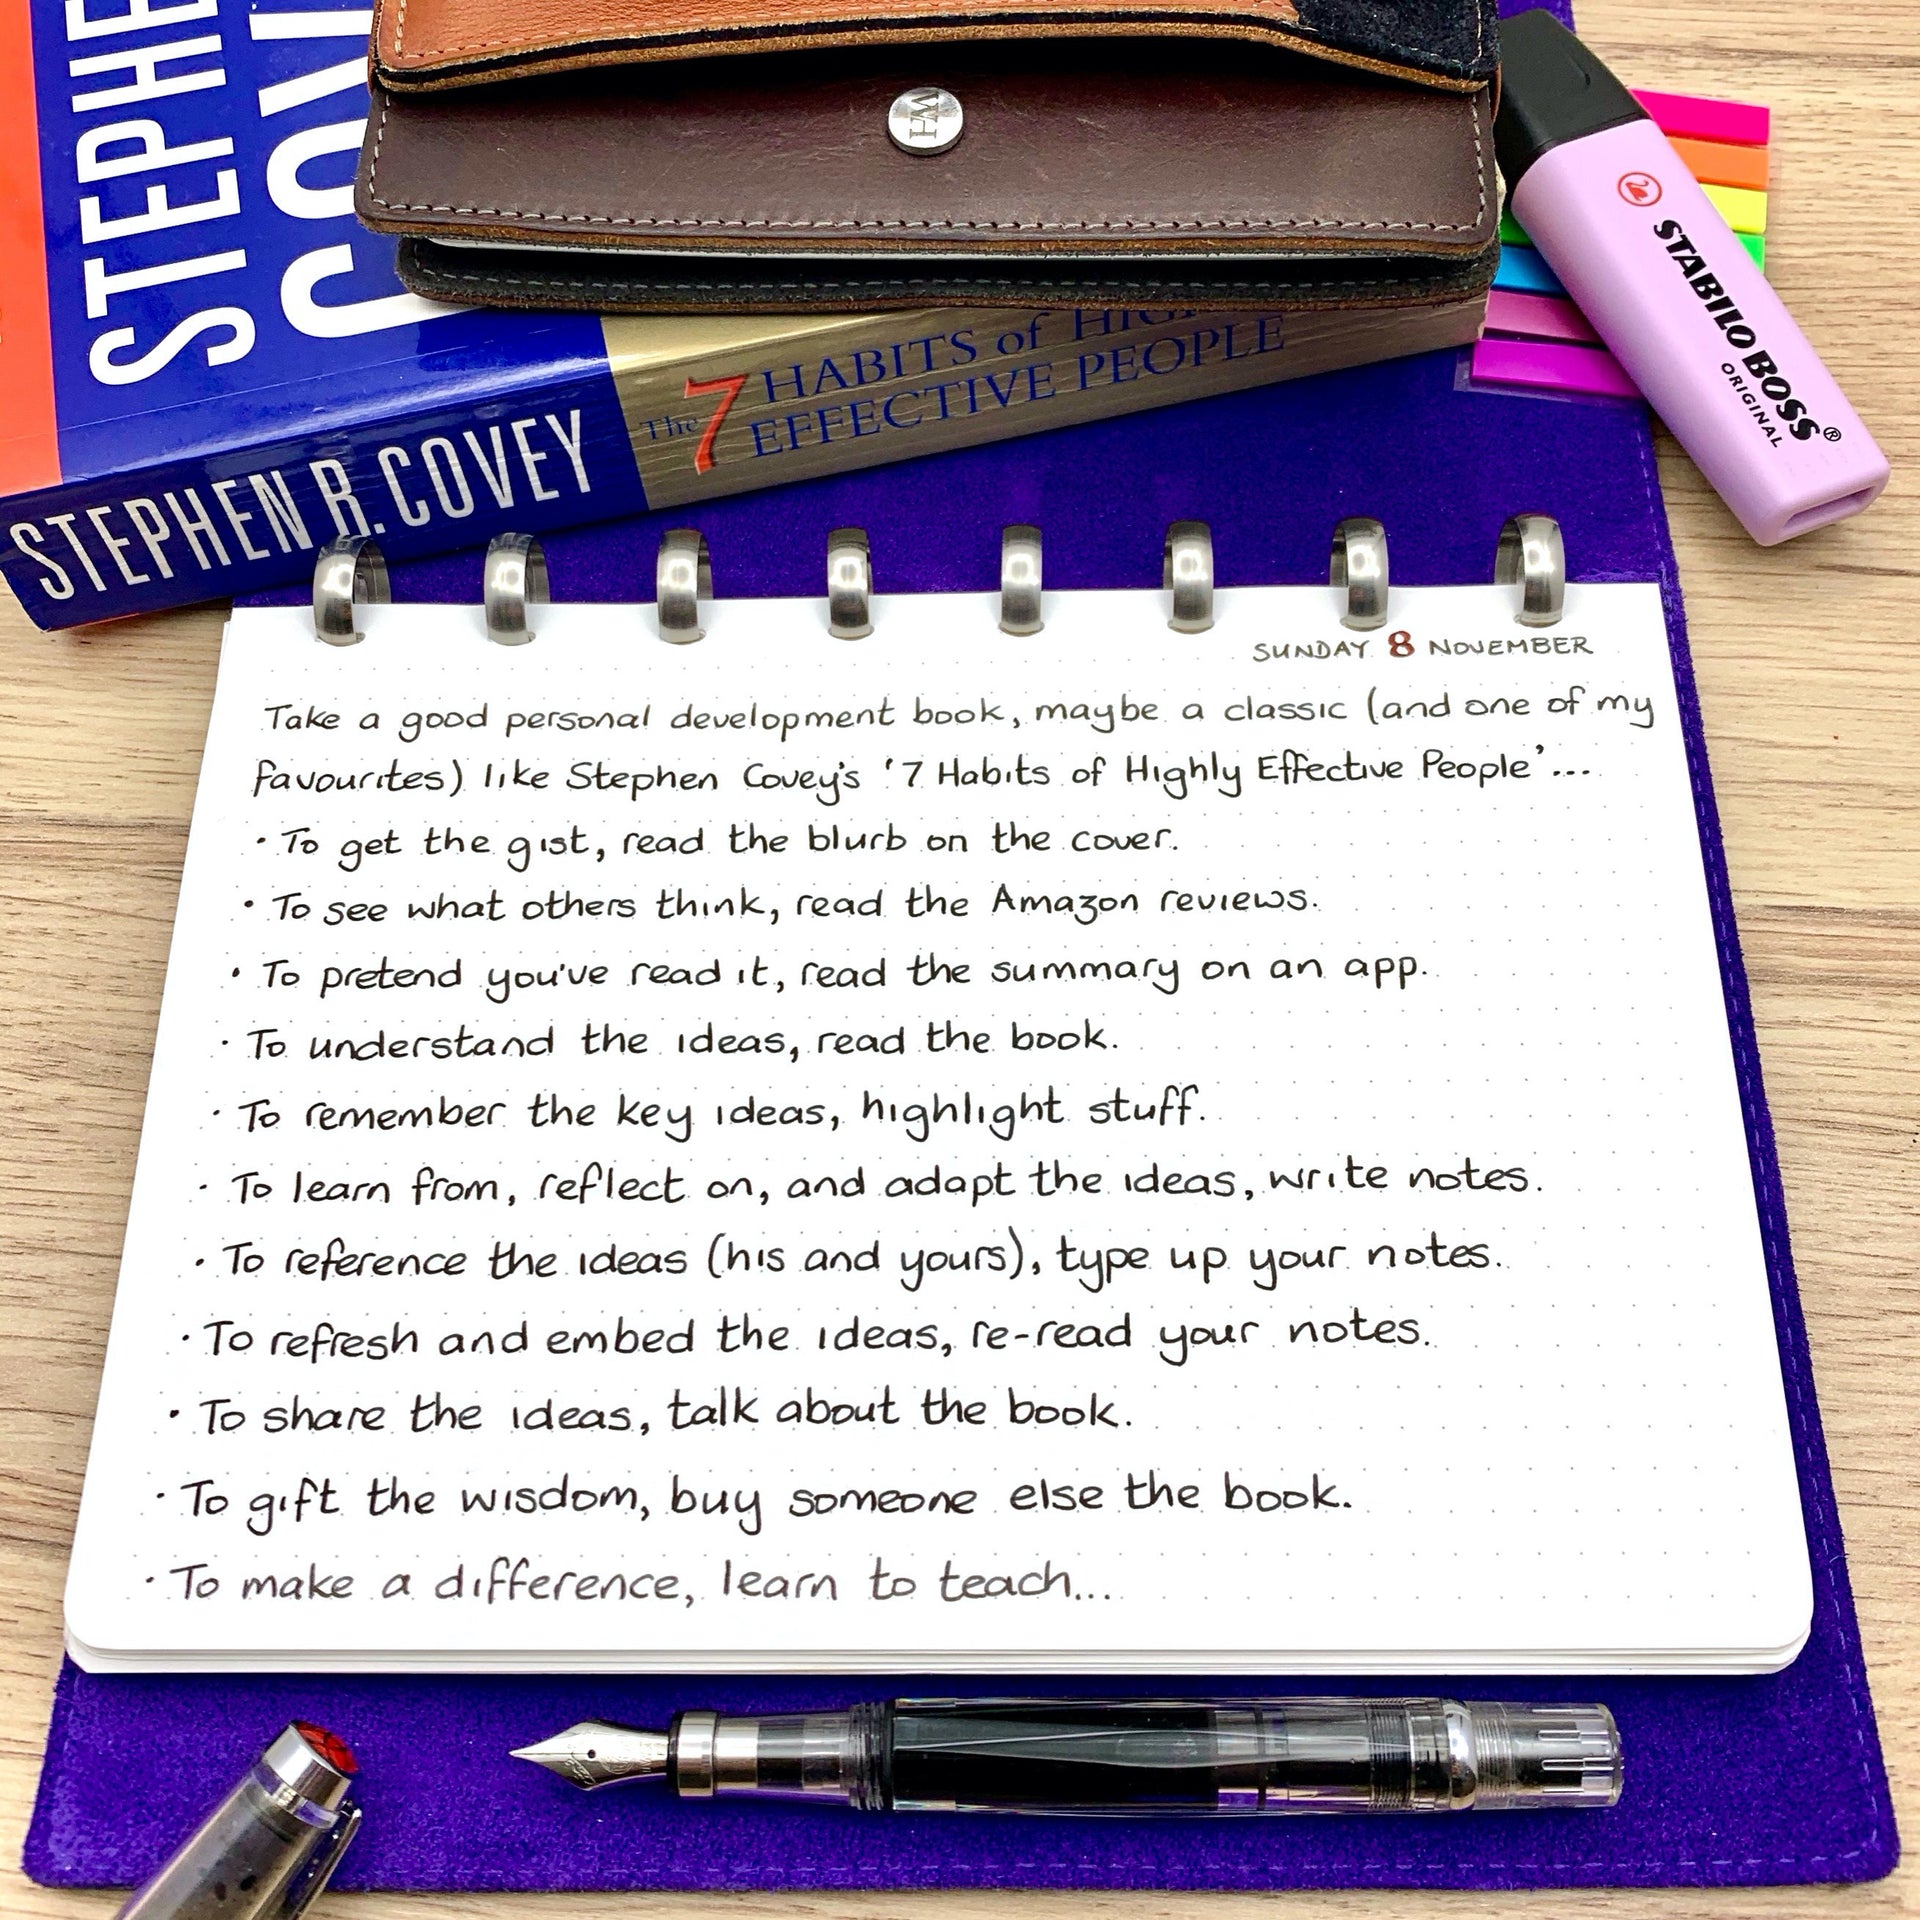 STEPHE
WH
STABILO BOSS®
ORIGINAL
The 7 HABITS of HIGH
EFFECTIVE PEOPLE
STEPHEN R. COVEY
SUNDAY 8 NOVEMBER
Take a good personal development book, maybe a classic (and one of my
favourites) like Stephen Covey's '7 Habits of Highly Effective People'...
• To get the gist, read the blurb on the cover.
• To see what others think, read the Amazon reviews.
• To pretend you've read it, read the summary on an app.
• To understand the ideas, read the book.
• To remember the key ideas, highlight stuff.
• To learn from, reflect on, and adapt the ideas, write notes.
• To reference the ideas (his and yours), type up your notes.
• To refresh and embed the ideas, re-read your notes.
• To share the ideas, talk about the book.
• To gift the wisdom, buy someone else the book.
• To make a difference, learn to teach...